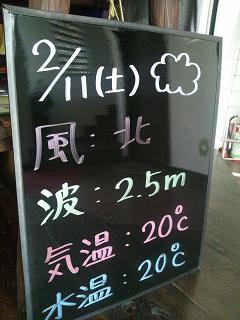 2/11(土)
風:北
波:2.5m
気温:20℃
水温:20℃